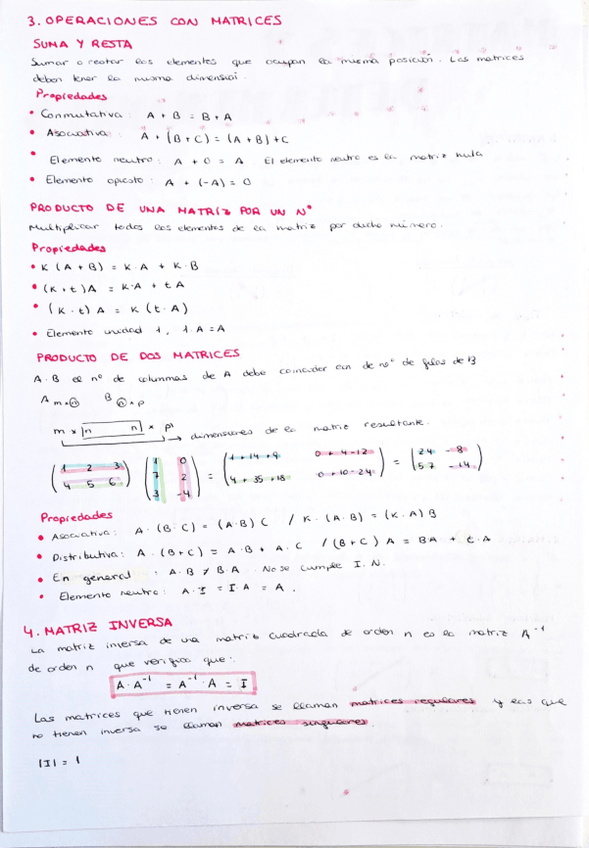 3. OPERACIONES CON MATRICES
SUMA Y RESTA
Sumar o restar los elementos que ocupan la misma posición. Las matrices
deben tener la misma dimensioí.
Propiedades
• Conmutativa: A + B = B + A
• Asociativa: A + (B + C) = (A + B) + C
• Elemento neutro: A + 0 = A. El elemento neutro es la matriz nula
• Elemento opuesto: A + (-A) = 0
PRODUCTO DE UNA MATRIZ POR UN Nº
Multiplicar todos los elementos de la matriz por dicho número.
Propiedades
• K (A + B) = K · A + K · B
• (K + t) A = K·A + t A
• (K · t) A = K (t · A)
• Elemento unidad 1, 1·A = A
PRODUCTO DE DOS MATRICES
A · B el nº de columnas de A debe coincidir con de nº de filas de B
A m×n B n×p
m × n n × p → dimensiones de la matriz resultante.
(1 2 3 / 4 5 6) (1 0 / 7 2 / 3 -4) = (1 + 14 + 9 0 + 4 - 12 / 4 + 35 + 18 0 + 10 - 24) = (24 -8 / 57 -14)
Propiedades
• Asociativa: A · (B · C) = (A · B) C / K · (A · B) = (K · A) B
• Distributiva: A · (B + C) = A · B + A · C / (B + C) A = BA + t · A
• En general: A · B ≠ B · A No se cumple I. N.
• Elemento neutro: A · I = I · A = A.
4. MATRIZ INVERSA
La matriz inversa de una matriz cuadrada de orden n es la matriz A⁻¹
de orden n que verifica que:
A · A⁻¹ = A⁻¹ · A = I
Las matrices que tienen inversa se llaman matrices regulares y las que
no tienen inversa se llaman matrices singulares.
|I| = 1